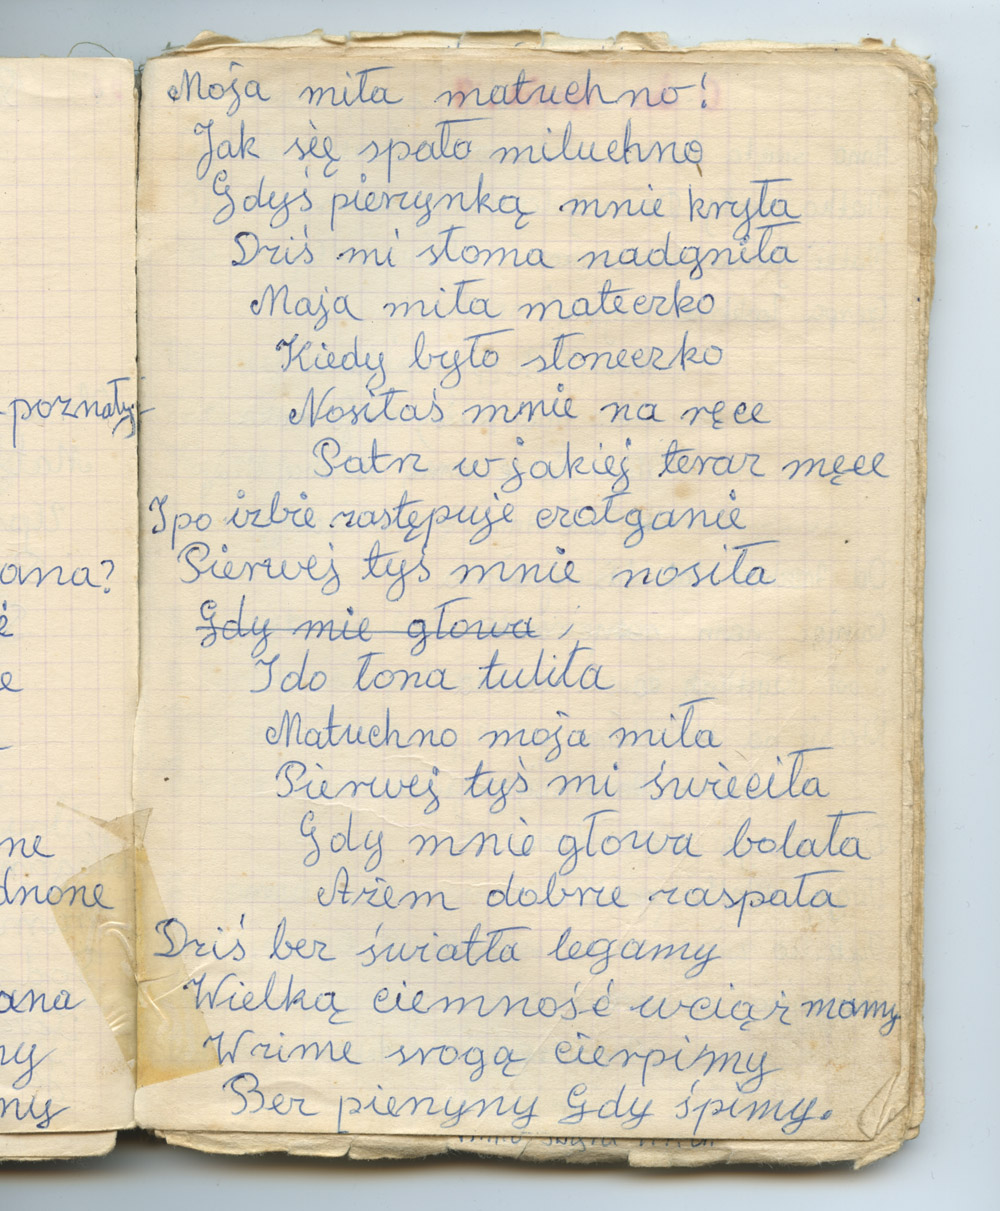 Moja miła matuchno!
Jak się spało miluchno
Gdyś pierzynką mnie kryła
Dziś mi słoma nadgniła
Maja miła mateczko
Kiedy było słoneczko
Nosiłaś mnie na ręce
Patrz w jakiej teraz męce
I po izbie zastępuje czołganie
Pierwej tyś mnie nosiła
Gdy mie głowa
I do łona tuliła
Matuchno moja miła
Pierwej tyś mi świeciła
Gdy mnie głowa bolała
Ażem dobrze zaspała
Dziś bez światła legamy
Wielką ciemność wciąż mamy
W zime srogą cierpimy
Bez pierzyny Gdy śpimy.
poznały
ana?
ne
dnone
ana
my